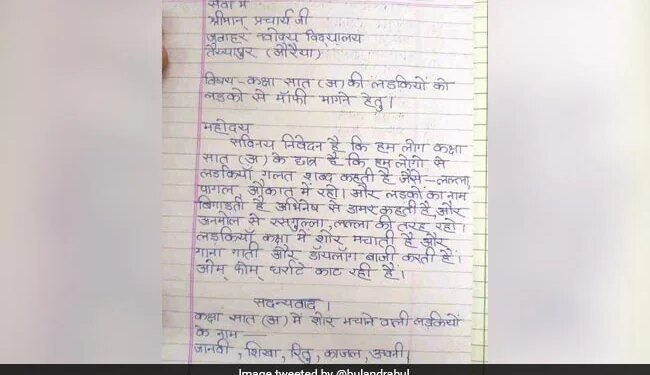 सेवा में
श्रीमान् प्रचार्य जी
जवाहर नवोदय विद्यालय
तैय्यापुर (औरैया)
विषय - कक्षा सात (अ) की लडकियों को
लडको से माँफी मांगने हेतु।
महोदय
सविनय निवेदन है कि हम लोग कक्षा
सात (अ) के छात्र है कि हम लोगो से
लडकियाँ गलत शब्द कहती है जैसे - लल्ला,
पागल, औकात में रहो। और लडकों का नाम
बिगाडती है अभिनेष से डामर कहती है, और
अनमोल से रसगुल्ला, लल्ला की तरह रहो।
लडकियाँ कक्षा में शोर मचाती है और
गाना गाती और डॉयलॉग बाजी करती हैं।
ओम् फोम् धर्राटे काट रही है।
सदन्यवाद।
कक्षा सात (अ) में शोर मचाने वली लडकियों
के नाम —
जानवी, शिखा, रितु, काजल,
Image tweeted by @bulandrahul